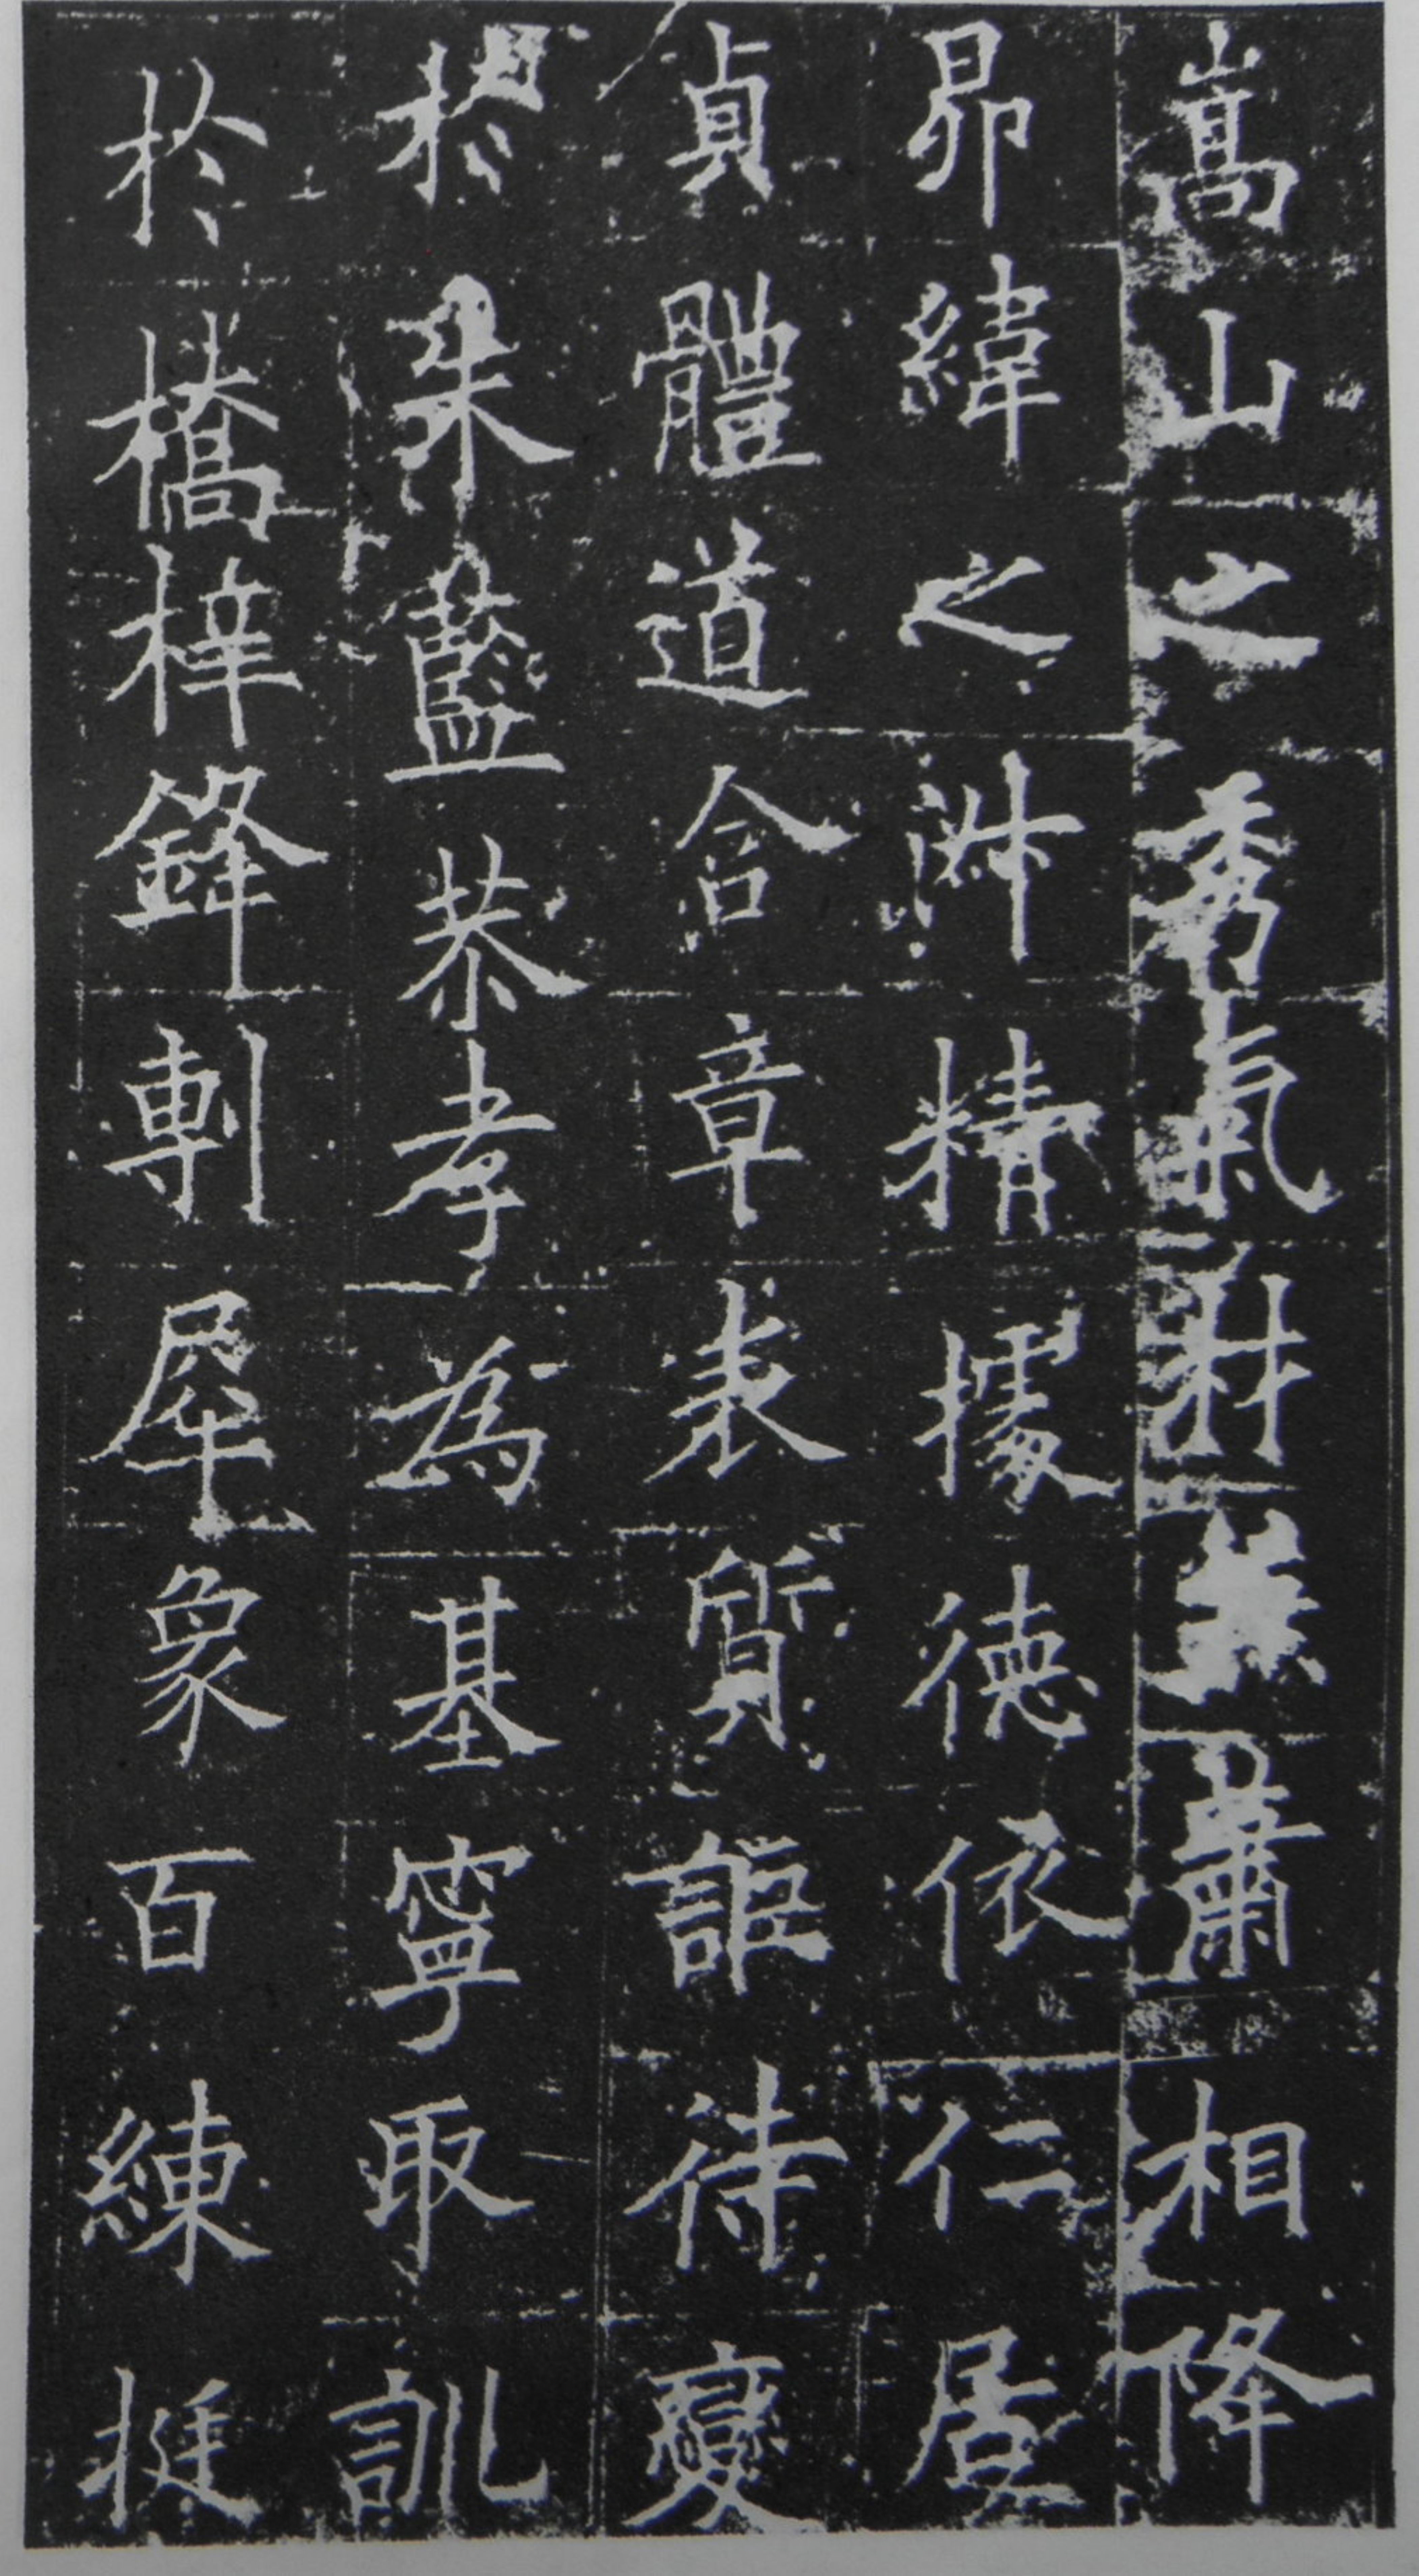 嵩山之秀氣材蕭相降
昴緯之淑精據德依仁居
貞體道含章表質詎待變
於朱藍恭孝為基寧取訓
於橋梓鋒剸犀象百練挺